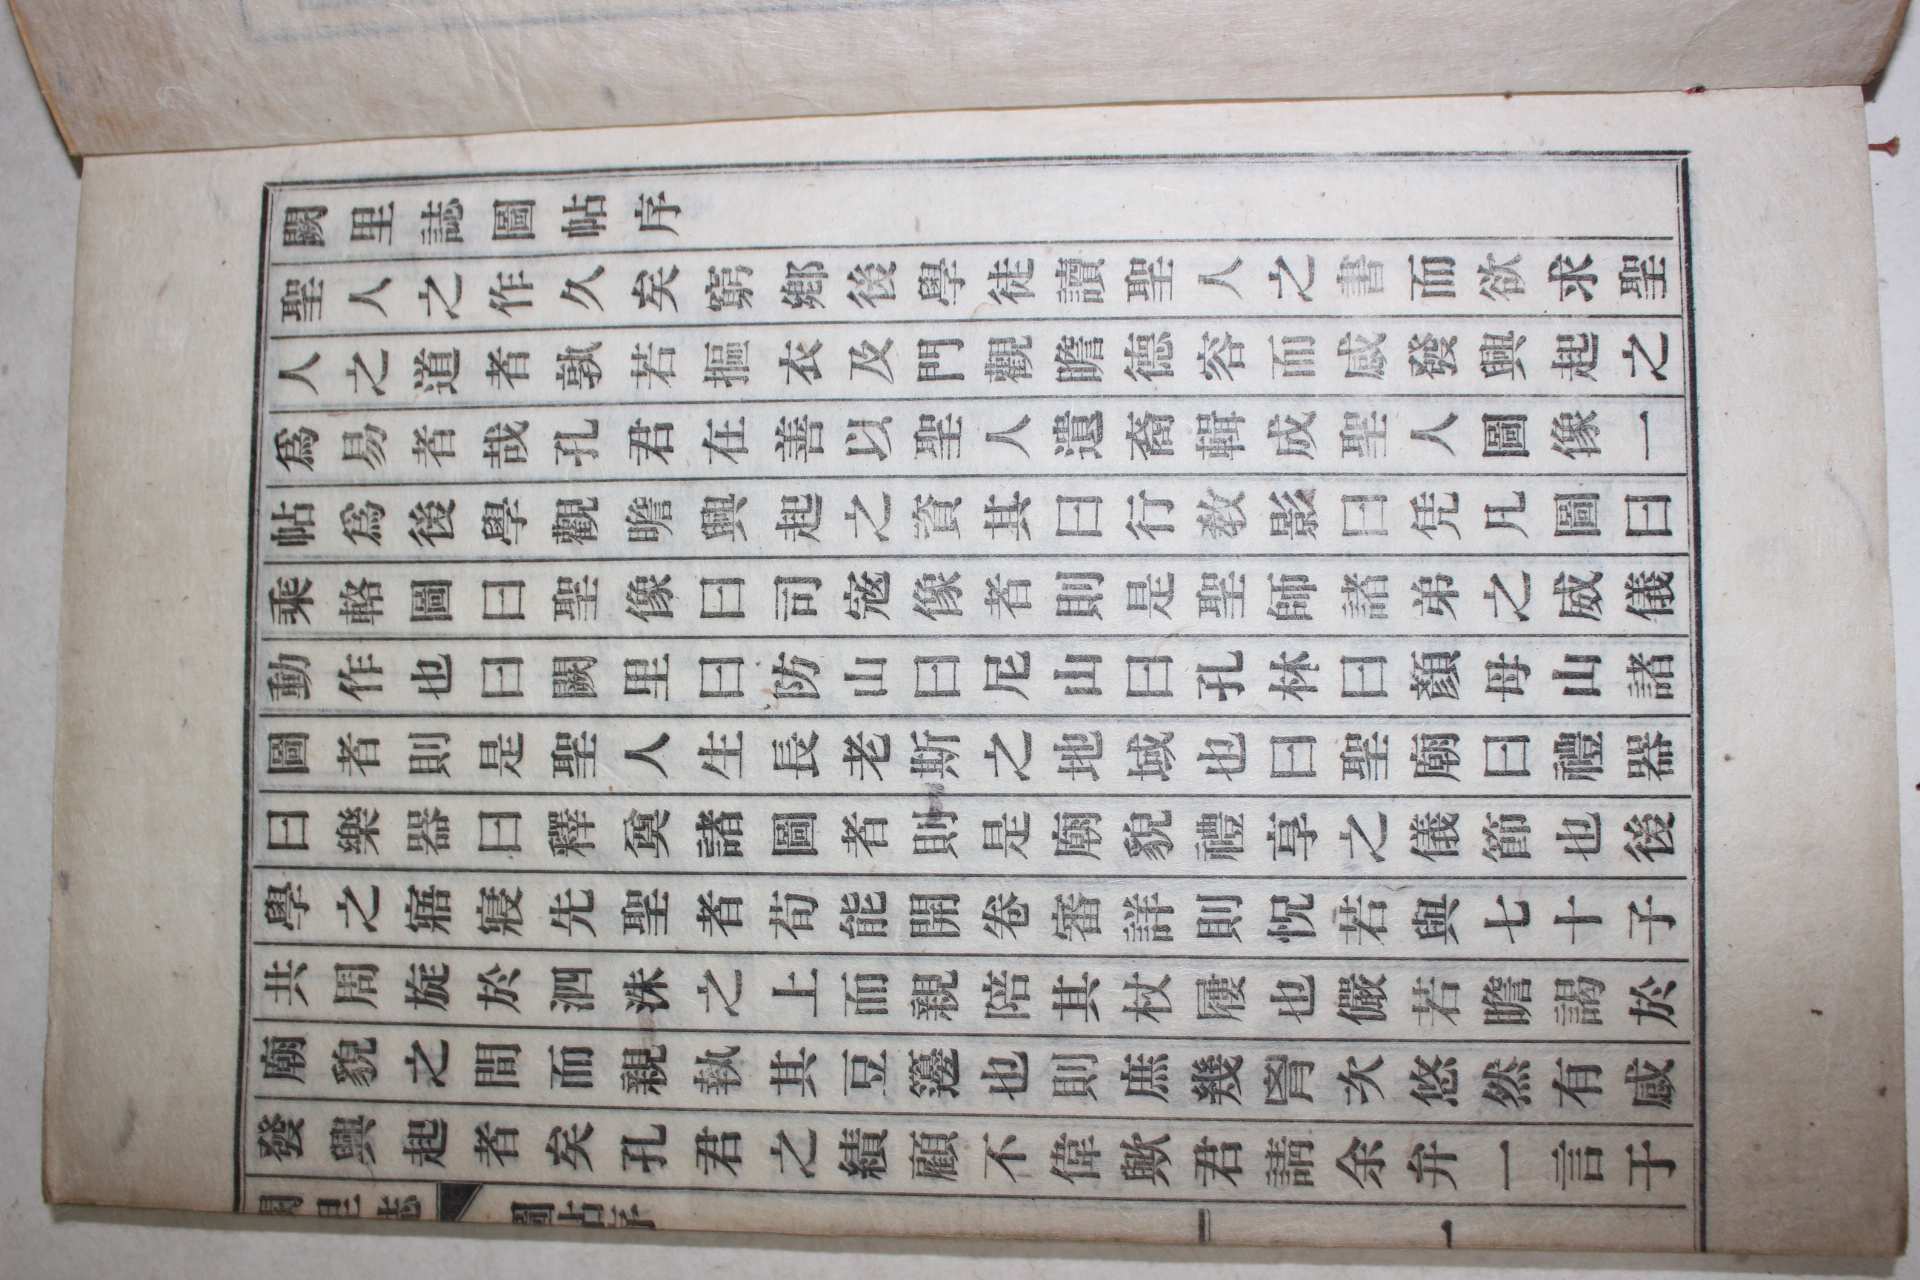 闕里誌圖帖序
聖人之作久矣窮鄉後學徒讀聖人之書而欲求聖
人之道者孰若摳衣及門觀瞻德容而感發興起之
爲易者哉孔君在善以聖人遺裔輯成聖人圖像一
帖爲後學觀瞻興起之資其曰行敎影曰凭几圖曰
乘輅圖曰聖像曰司寇像者則是聖師諸弟之威儀
動作也曰闕里曰防山曰尼山曰孔林曰顏母山諸
圖者則是聖人生長老斯之地域也曰聖廟曰禮器
曰樂器曰釋奠諸圖者則是廟貌禮享之儀節也後
學之寤寐先聖者苟能開卷審詳則怳若與七十子
共周旋於泗洙之上而親陪其杖屨也儼若瞻謁於
廟貌之間而親執其豆籩也則庶幾胷次悠然有感
發興起者矣孔君之績顧不偉歟君請余弁一言于
闕里志 圖帖序 一